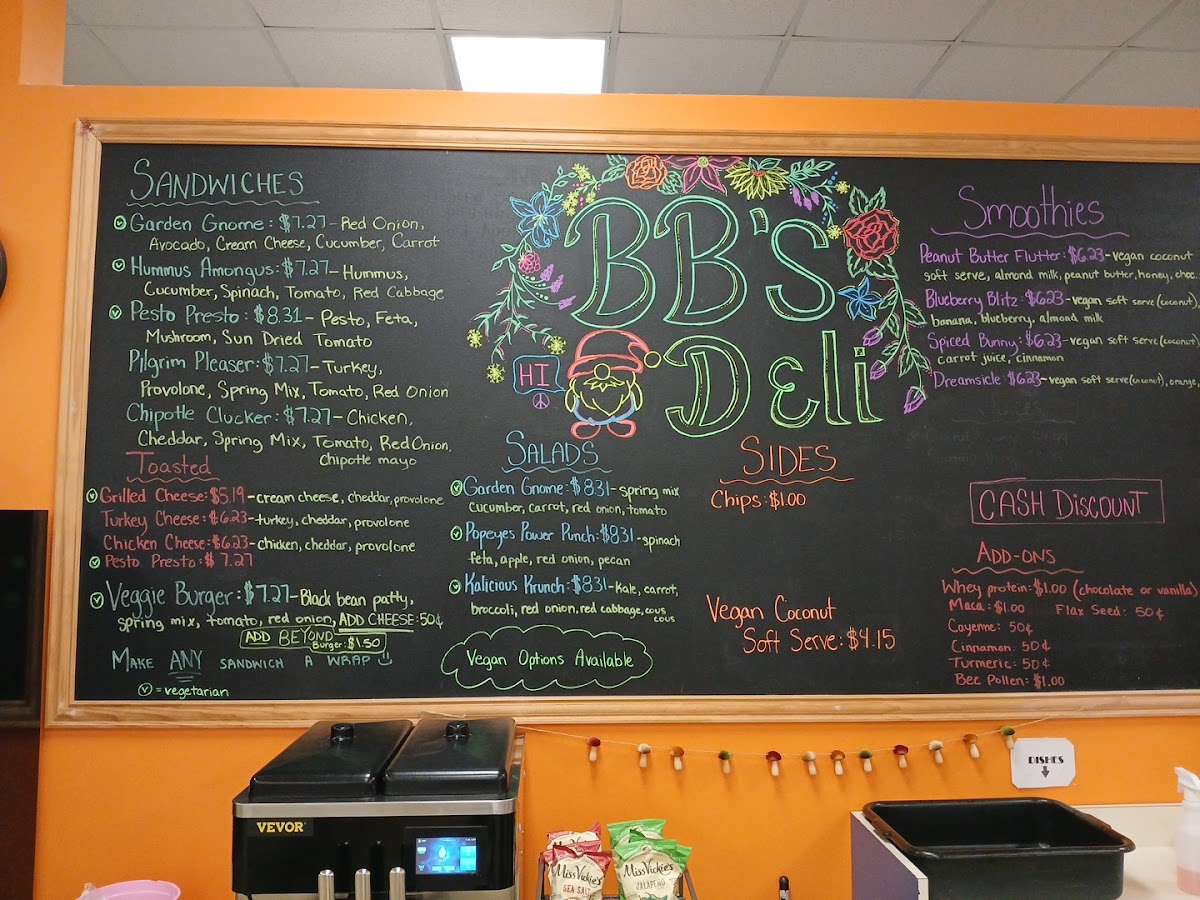 SANDWICHES
ⓥ Garden Gnome: $7.27 - Red Onion,
Avocado, Cream Cheese, Cucumber, Carrot
ⓥ Hummus Amongus: $7.27 - Hummus,
Cucumber, Spinach, Tomato, Red Cabbage
ⓥ Pesto Presto: $8.31 - Pesto, Feta,
Mushroom, Sun Dried Tomato
Pilgrim Pleaser: $7.27 - Turkey,
Provolone, Spring Mix, Tomato, Red Onion
Chipotle Clucker: $7.27 - Chicken,
Cheddar, Spring Mix, Tomato, Red Onion,
Chipotle mayo
Toasted
ⓥ Grilled Cheese: $5.19 - cream cheese, cheddar, provolone
Turkey Cheese: $6.23 - turkey, cheddar, provolone
Chicken Cheese: $6.23 - chicken, cheddar, provolone
ⓥ Pesto Presto: $7.27
ⓥ Veggie Burger: $7.27 - Black bean patty,
spring mix, tomato, red onion, ADD CHEESE: 50¢
ADD BEYOND
Burger: $1.50
MAKE ANY SANDWICH A WRAP
ⓥ = vegetarian
BB's
Deli
HI
SALADS
ⓥ Garden Gnome: $8.31 - spring mix
cucumber, carrot, red onion, tomato
ⓥ Popeyes Power Punch: $8.31 - spinach
feta, apple, red onion, pecan
ⓥ Kalicious Krunch: $8.31 - Kale, carrot,
broccoli, red onion, red cabbage, cous
cous
Vegan Options Available
SIDES
Chips: $1.00
Vegan Coconut
Soft Serve: $4.15
Smoothies
Peanut Butter Flutter: $6.23 - vegan coconut
soft serve, almond milk, peanut butter, honey, choc
Blueberry Blitz: $6.23 - vegan soft serve (coconut)
banana, blueberry, almond milk
Spiced Bunny: $6.23 - vegan soft serve (coconut)
carrot juice, cinnamon
Dreamsicle: $6.23 - vegan soft serve (coconut), orange,
CASH DISCOUNT
ADD-ONS
Whey protein: $1.00 (chocolate or vanilla)
Maca: $1.00 Flax Seed: 50¢
Cayenne: 50¢
Cinnamon: 50¢
Turmeric: 50¢
Bee Pollen: $1.00
DISHES
VEVOR
MISS VICKIE'S
SEA SALT
MISS VICKIE'S
JALAPEÑO